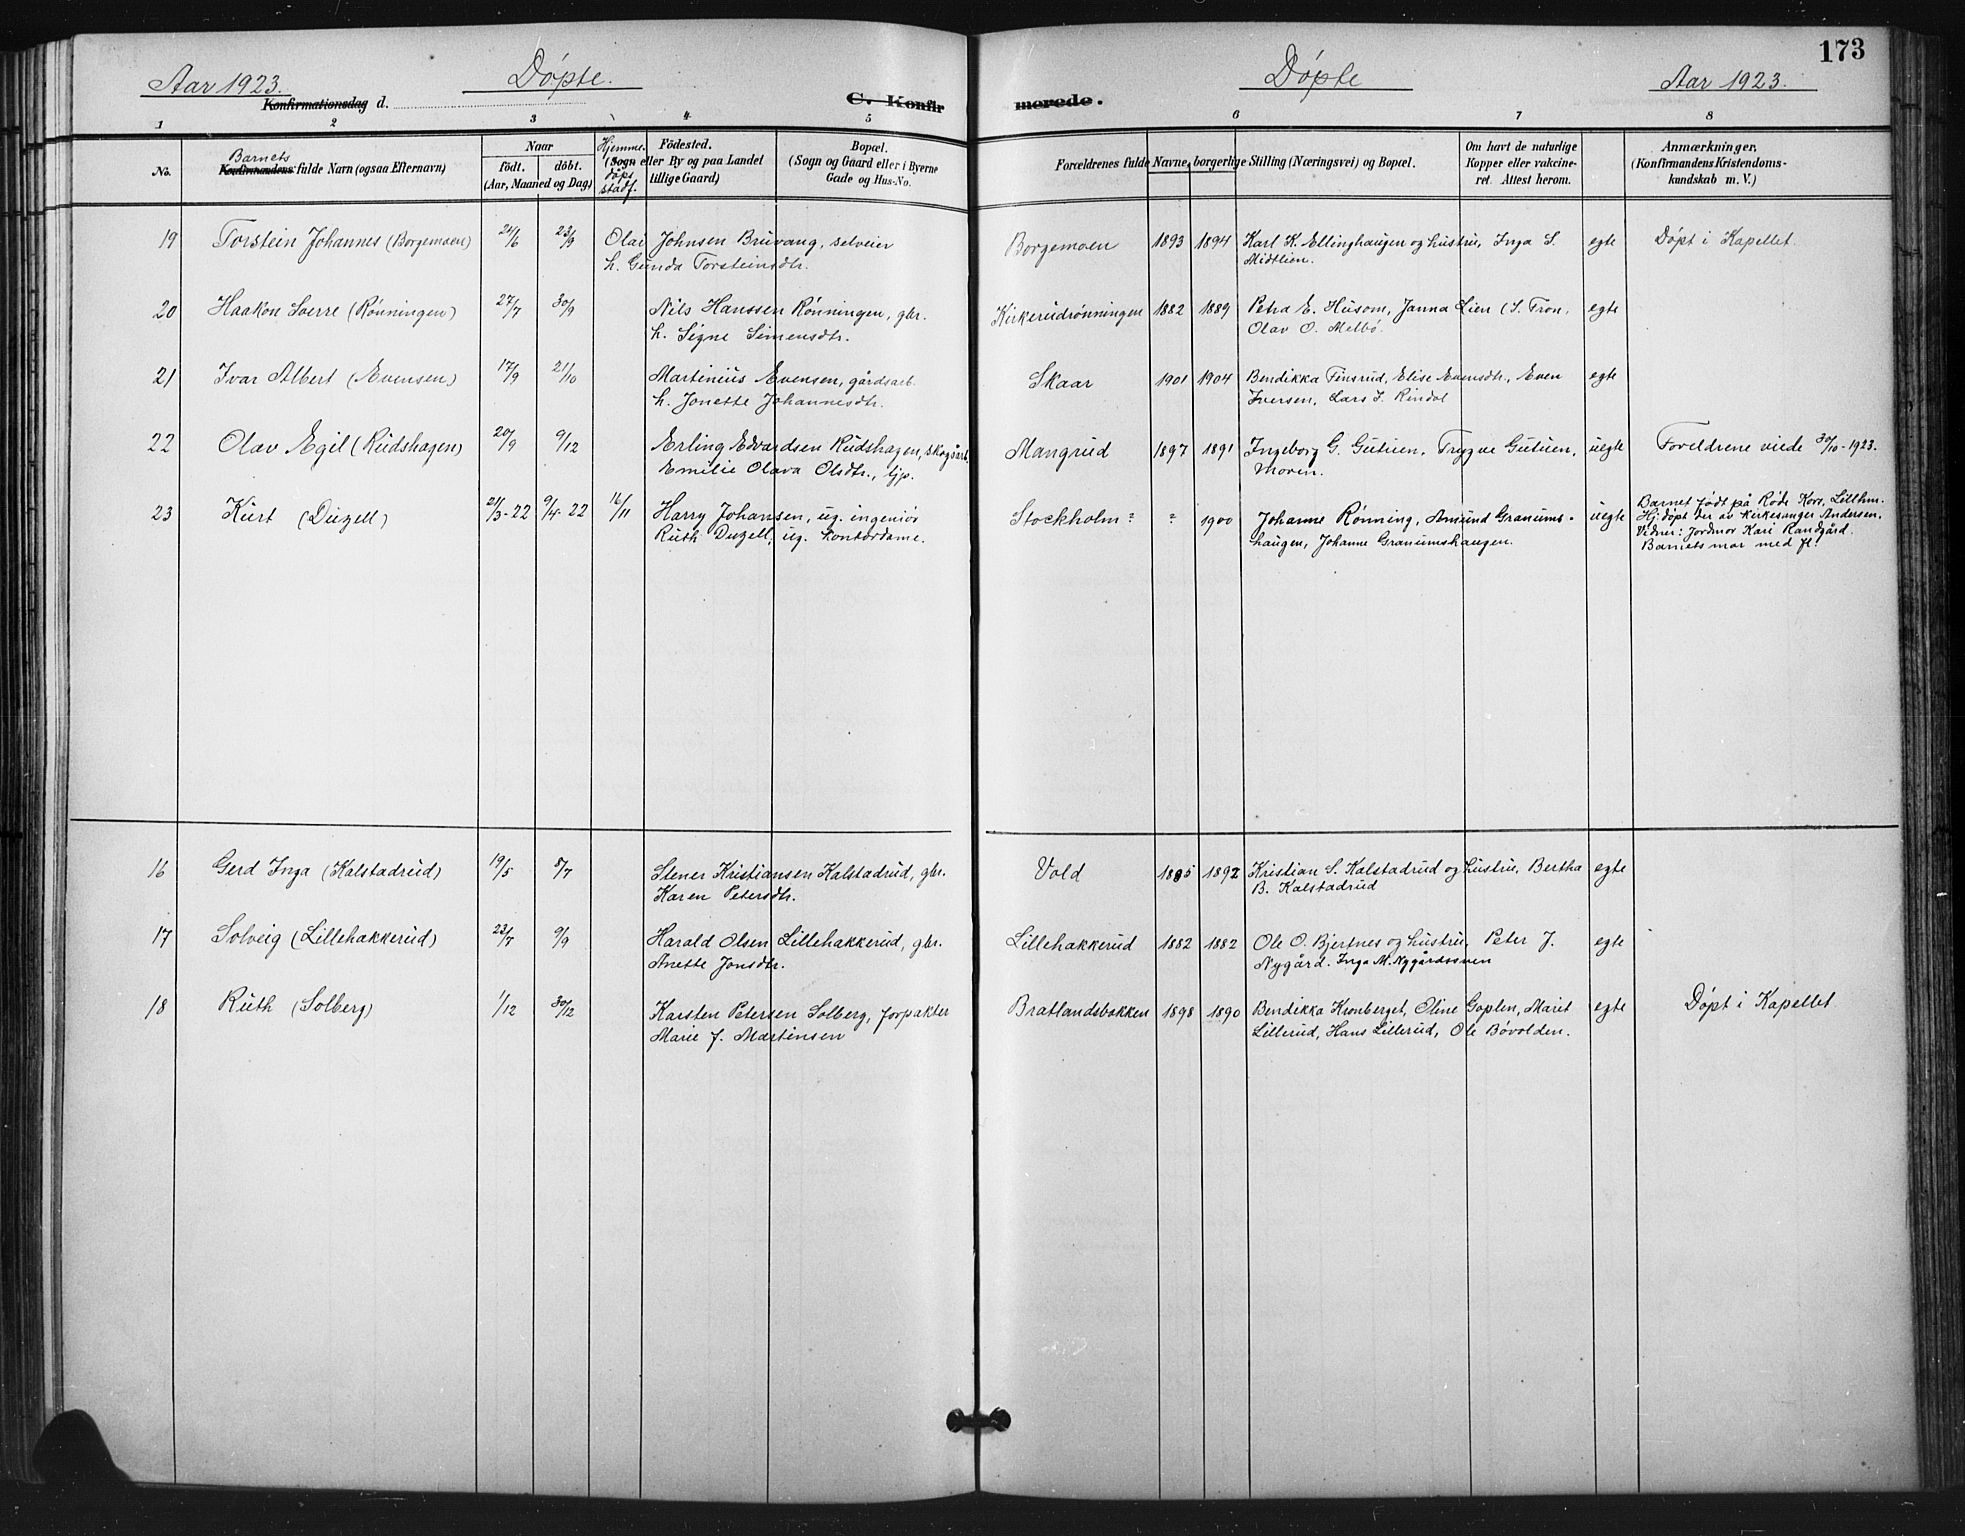 173
Aar 1923. Döpte. Döpte Aar 1923.
Konfirmationsdag d. C. Konfir merede.
1 2 3 4 5 6 7 8
No.
Barnets
Konfirmandens fulde Navn (ogsaa Efternavn)
Naar
födt. döbt.
(Aar, Maaned og Dag)
Hjemme
döpt
stadf.
Födested.
(Sogn eller By og paa Landet
tillige Gaard)
Bopæl.
(Sogn og Gaard eller i Byerne
Gade og Hus-No.
Forældrenes fulde Navne, borgerlige Stilling (Næringsvei) og Bopæl.
Om havt de naturlige
Kopper eller vakcine-
ret. Attest herom.
Anmærkninger,
(Konfirmandens Kristendoms-
kundskab m. V.)
19 Torstein Johannes (Borgemoen) 24/6 23/9 Olai Johnsen Bruvang, selveier Borgemoen 1893 1894 Karl K. Ellinghaugen og hustru, Inga S. egte Döpt i Kapellet.
h. Gunda Torsteinsdtr. Midtlien.
20 Haakon Sverre (Rønningen) 27/7 30/9 Nils Hanssen Rønningen, gbr. Kirkerudrønningen 1882 1889 Petra E. Husom, Janna Lien (S. Fron, egte
h. Signe Simensdtr. Olav O. Melbö.
21 Ivar Albert (Evensen) 17/9 21/10 Martinius Evensen, gårdsarb. Skaar 1901 1904 Bendikka Finsrud, Elise Evensdtr., Even egte
h. Jonette Johannesdtr. Iversen, Lars I. Rindal
22 Olav Egil (Rudshagen) 20/9 9/12 Erling Edvardsen Rudshagen, skogsarb. Mangrud 1897 1891 Ingeborg G. Gutuen, Trygve Gutuen, uegte Foreldrene viede 30/10-1923.
Emilie Olava Olsdtr., tjp. Moren.
23 Kurt (Duzell) 21/3-22 9/4-22 16/11 Harry Johansen, ug. ingeniör Stockholm? ? 1900 Johanne Rønning, Amund Granums- uegte
Ruth Duzell, ug. kontordame. haugen, Johanne Granumshaugen.
Barnet födt på Röde Kors, Lillhm.
Hj. döpt der av kirkesanger Andersen.
Vidner: Jordmor Kari Randgård.
Barnets mor med fl.
16 Gerd Inga (Kalstadrud) 19/5 8/7 Stener Kristiansen Kalstadrud, gbr. Vold 1885 1892 Kristian S. Kalstadrud og hustru, Bertha egte
Karen Petersdtr. B. Kalstadrud
17 Solveig (Lillehakkerud) 23/7 9/9 Harald Olsen Lillehakkerud, gbr. Lillehakkerud 1882 1882 Ole O. Bjertnes og hustru, Peter J. egte
Anette Jonsdtr. Nygård. Inga M. Nygårdssven
18 Ruth (Solberg) 1/12 30/12 Karsten Petersen Solberg, forpakter Bratlandsbakken 1898 1890 Bendikka Kronberget, Oline Goplen, Marit egte Döpt i Kapellet.
Marie f. Martinsen Lillerud, Hans Lillerud, Ole Bövolden.